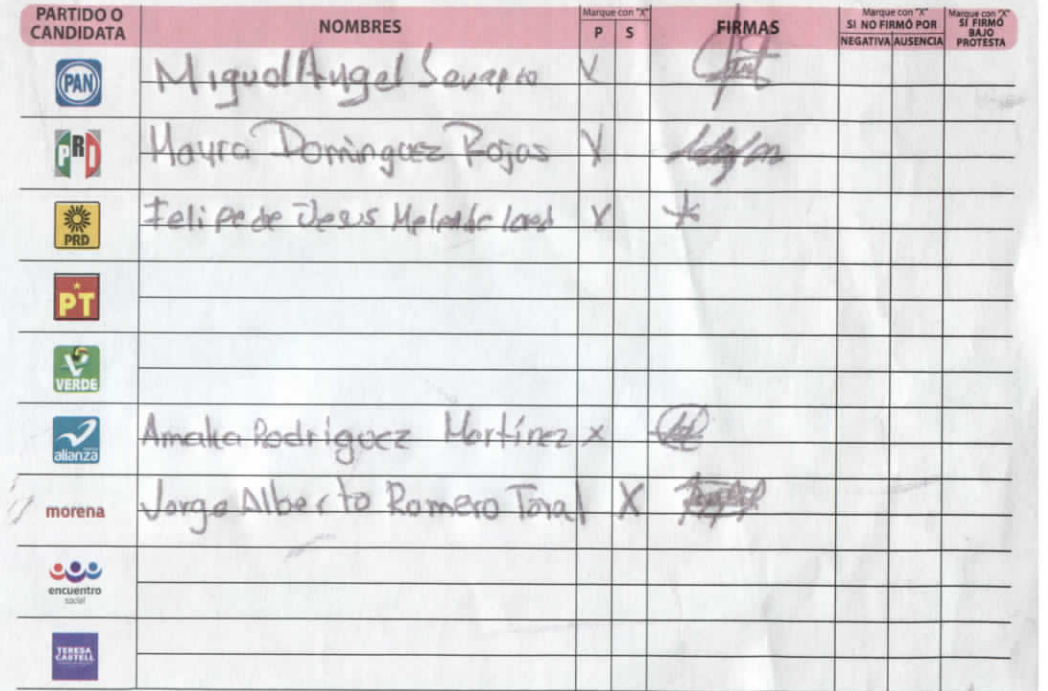 PARTIDO O CANDIDATA NOMBRES Marque con "X" P S FIRMAS Marque con "X" SI NO FIRMÓ POR NEGATIVA AUSENCIA Marque con "X" SI FIRMÓ BAJO PROTESTA
PAN Miguel Angel X
PRI Mayra Dominguez Rojas X
PRD Felipe de Jesus X
PT
VERDE
alianza Amalia Rodriguez Martínez X
morena Jorge Alberto Romero Toral X
encuentro social
TERESA CASTELL